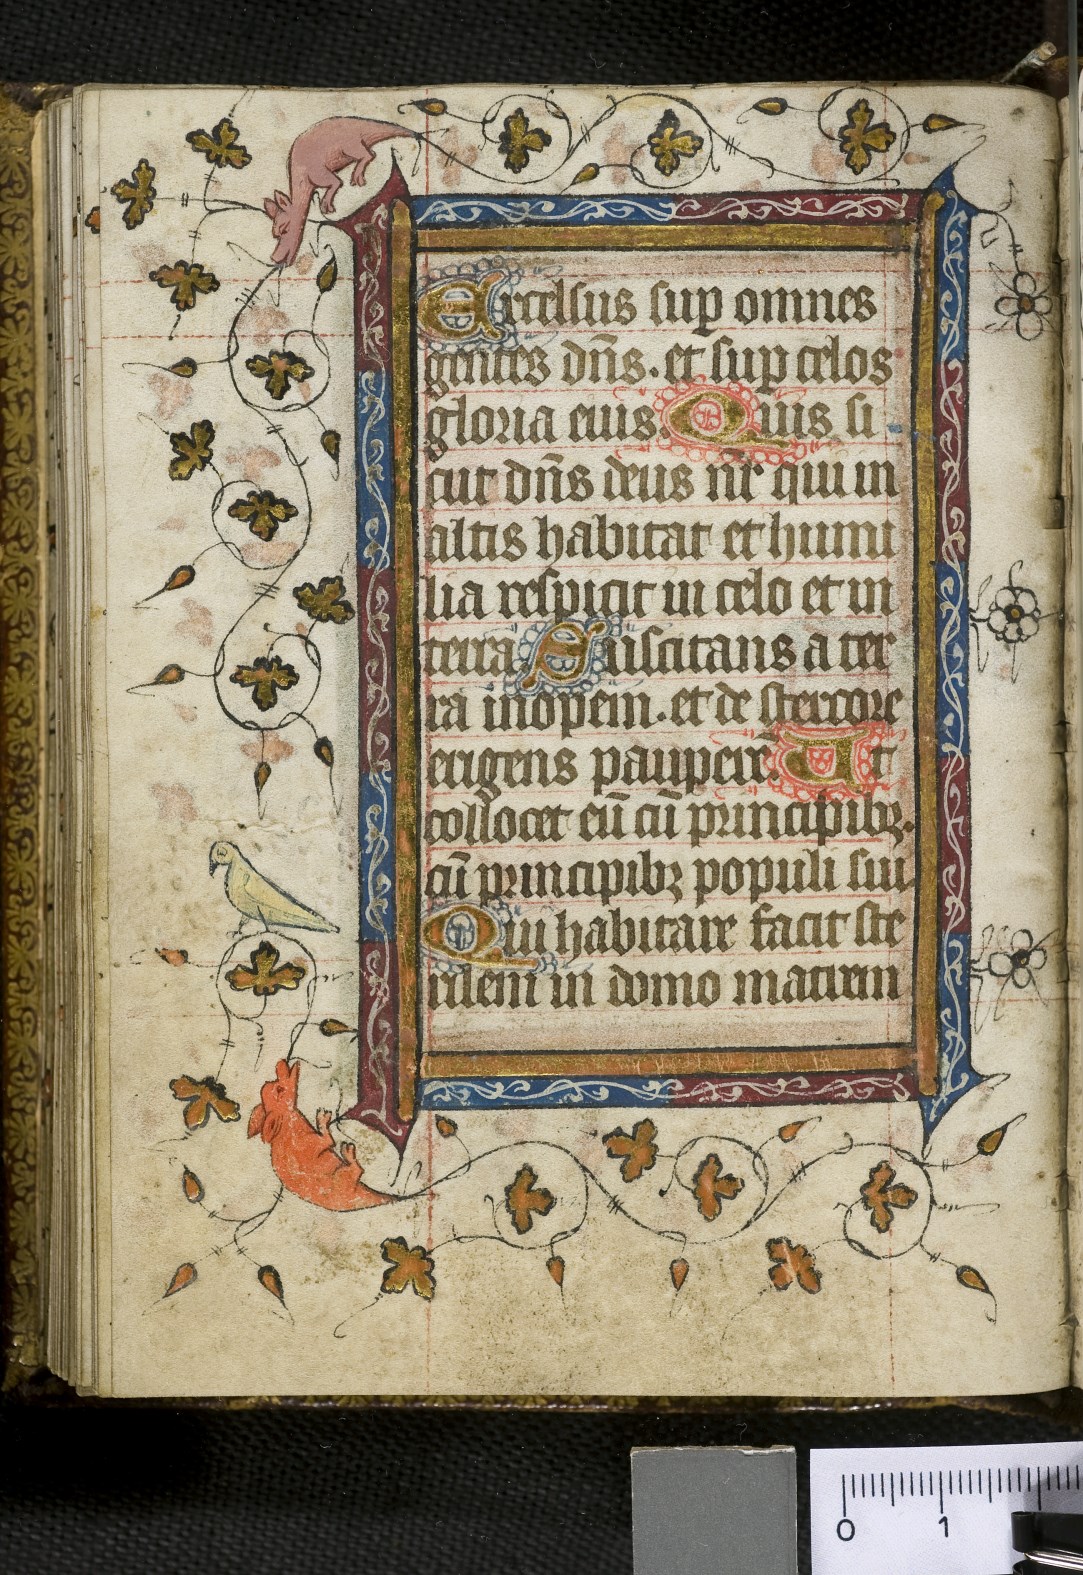 Excelsus sup omnes
gentes dn̄s. et sup celos
gloria eius. Quis si
cut dn̄s deus nr̄ qui in
altis habitat et humi
lia respicit in celo et in
terra Suscitans a ter
ra inopem. et de stercore
erigens pauperē. Ut
collocet eū cū principibꝫ.
cū principibꝫ populi sui
Qui habitare facit ste
rilem in domo matrem
0 1